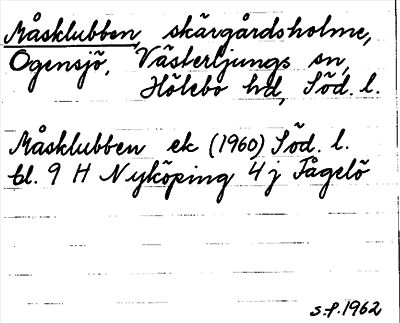 Måsklubben, skärgårdsholme,
Ogensjö, Västerljungs sn,
Hölebo hd, Söd. l.
Måsklubben ek (1960) Söd. l.
bl. 9 H Nyköping 4 j Fågelö
S.P. 1962